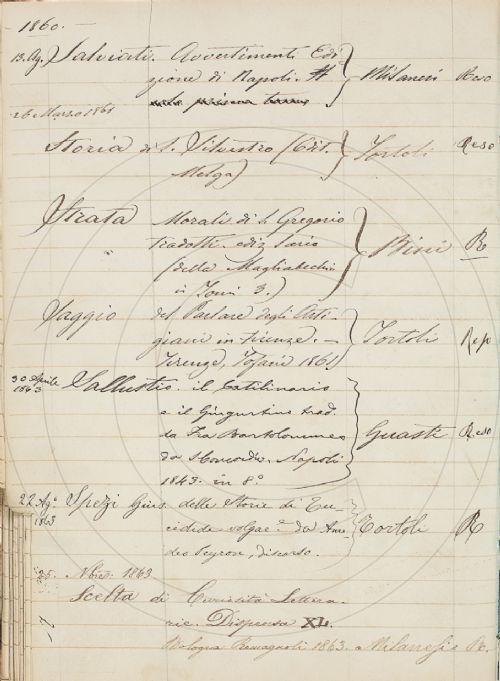 1860.
13. Ag. Salviati. Avvertimenti Edi-
zione di Napoli. Milanesi Reso
26 Marzo 1861
Storia di S. Silvestro (Edit. Tortoli Reso
Melga)
Strata Morali di S. Gregorio
tradotti. ediz
(della Magliabechia Bini Re
in Tomi 3.)
Saggio del Parlare degli Arti-
giani in Firenze. — Tortoli
Firenze, 1861)
30 Aprile 1863 Sallustio. il Catilinario
e il Giugurtino trad.
da Fra Bartolommeo Guasti Reso
da S. Concordio. Napoli
1843. in 8º
22 Agº 1863 Spezi Gius. delle Storie di Tu-
cidide volgar. da Ame- Tortoli R
deo Peyron, discorso.
25. Nbre. 1863
Scelta di Curiosità Lettera-
rie. Dispensa XL.
Bologna Romagnoli 1863. a Milanesi R.